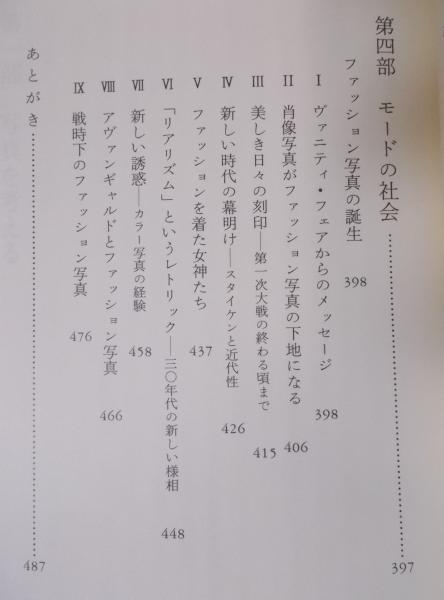 第四部　モードの社会……………………397
ファッション写真の誕生　398
Ⅰ　ヴァニティ・フェアからのメッセージ　398
Ⅱ　肖像写真がファッション写真の下地になる　406
Ⅲ　美しき日々の刻印——第一次大戦の終わる頃まで　415
Ⅳ　新しい時代の幕明け——スタイケンと近代性　426
Ⅴ　ファッションを着た女神たち　437
Ⅵ　「リアリズム」というレトリック——三〇年代の新しい様相　448
Ⅶ　新しい誘惑——カラー写真の経験　458
Ⅷ　アヴァンギャルドとファッション写真　466
Ⅸ　戦時下のファッション写真　476
あとがき……………………487